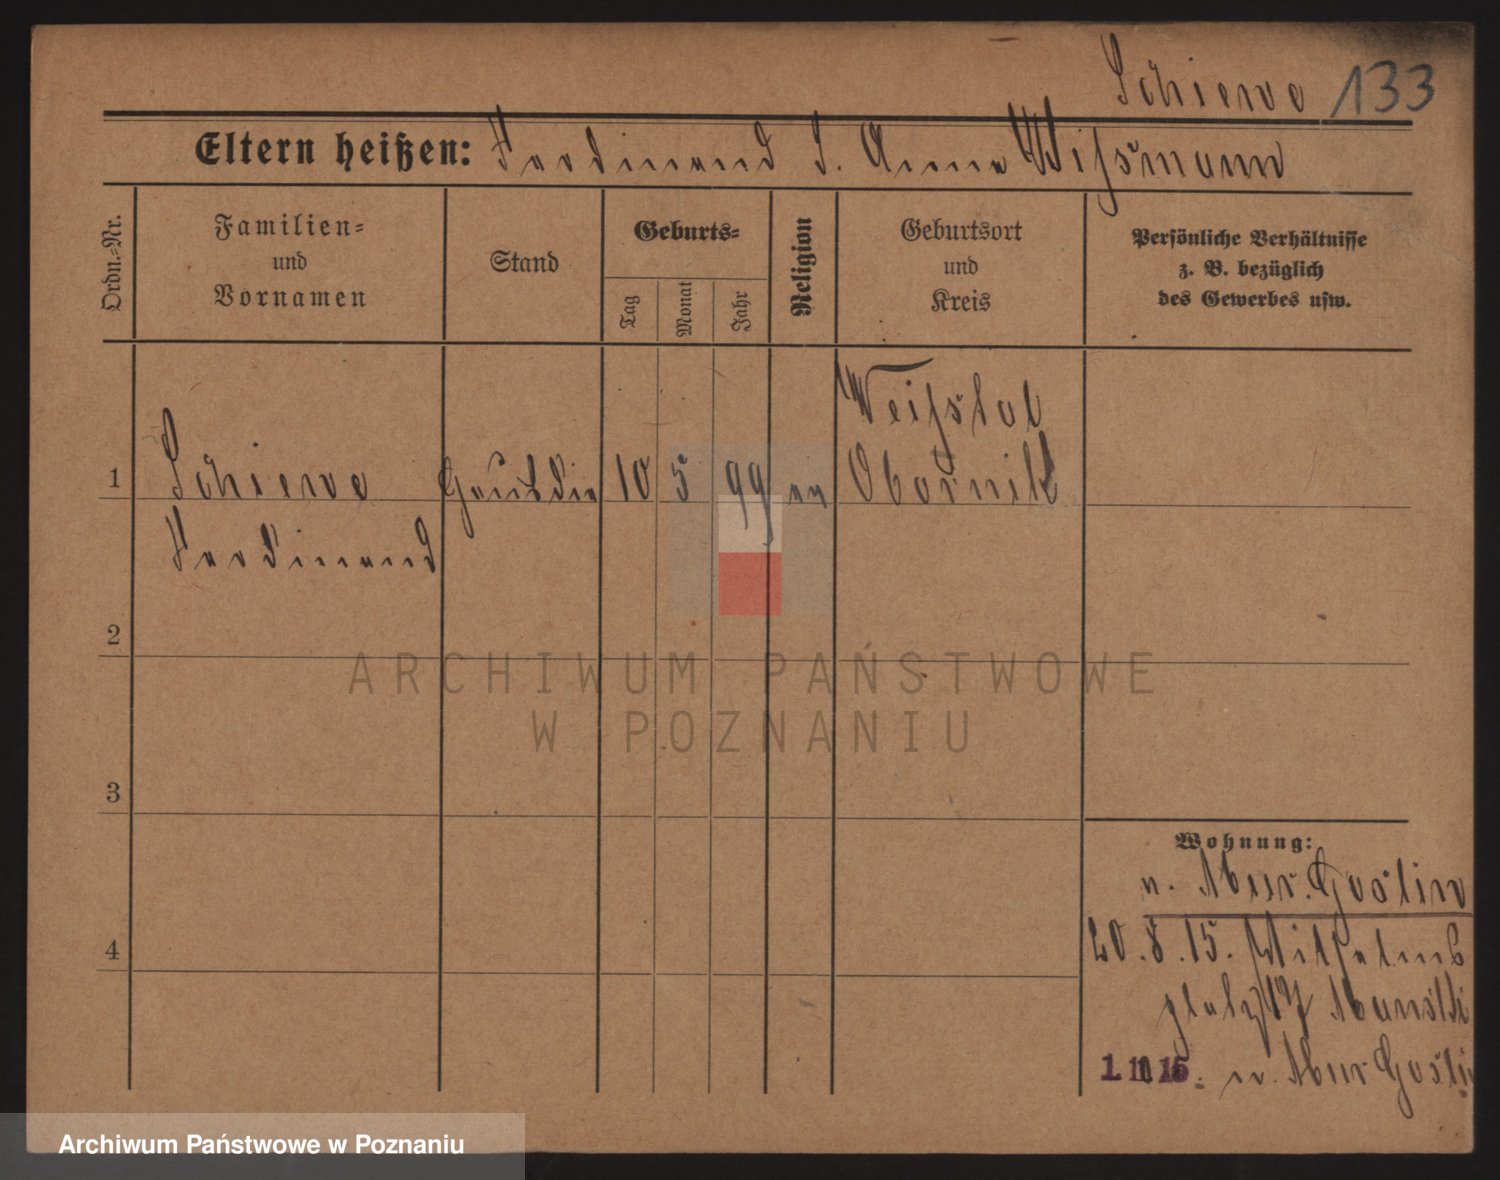 Schiewe 133
Eltern heißen: Ferdinand S. Anna Wißmann
Ordn.-Nr.
Familien-
und
Vornamen
Stand
Geburts-
Tag
Monat
Jahr
Religion
Geburtsort
und
Kreis
Persönliche Verhältnisse
z. B. bezüglich
des Gewerbes usw.
1
Schiewe
Ferdinand
10
5
99
ev
Obornik
2
3
4
ARCHIWUM PAŃSTWOWE
W POZNANIU
Wohnung:
n. Mur. Goslin
20.8.15. Wilhelms
platz 17
1.11.15. n. Mur Goslin
Archiwum Państwowe w Poznaniu